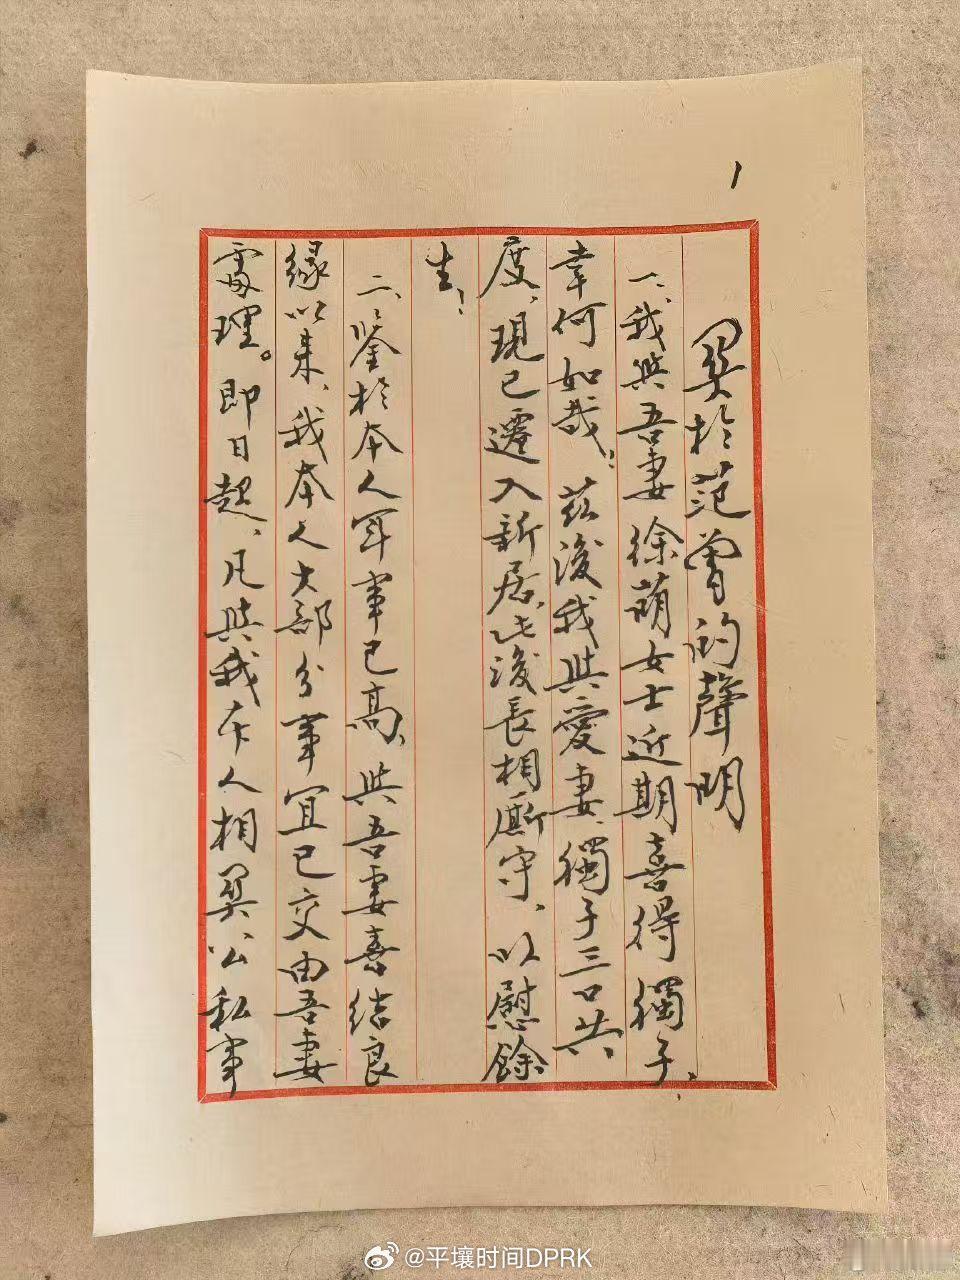 1
關於范曾的聲明
一、我與吾妻徐萌女士近期喜得獨子、
幸何如哉。茲後我與愛妻、獨子三口共
度、現已遷入新居、此後長相廝守、以慰餘
生；
二、鑒於本人年事已高、與吾妻喜結良
緣以來、我本人大部分事宜已交由吾妻
處理。即日起、凡與我本人相關公私事
@平壤时间DPRK